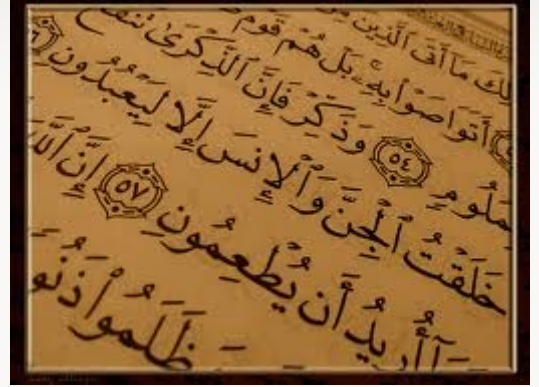 مَآ أَتَى ٱلَّذِينَ مِن
أَتَوَاصَوْا۟ بِهِۦ ۚ بَلْ هُمْ قَوْمٌ
بِمَلُومٍ ٥٤ وَذَكِّرْ فَإِنَّ ٱلذِّكْرَىٰ تَنفَعُ
خَلَقْتُ ٱلْجِنَّ وَٱلْإِنسَ إِلَّا لِيَعْبُدُونِ ٥٦
أُرِيدُ أَن يُطْعِمُونِ ٥٧ إِنَّ
ظَلَمُوا۟